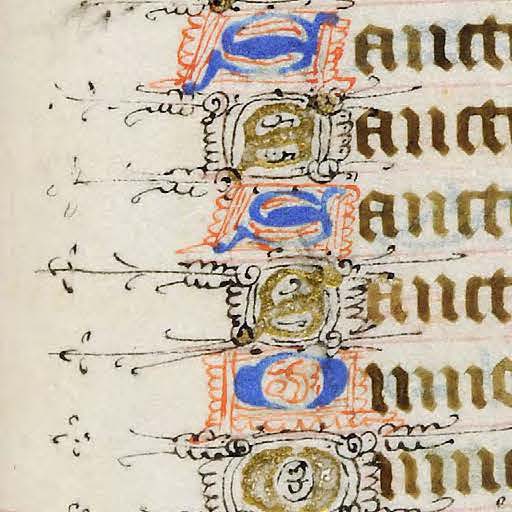 Sanct
Sanct
Sanct
Sanct
Omne
Omne